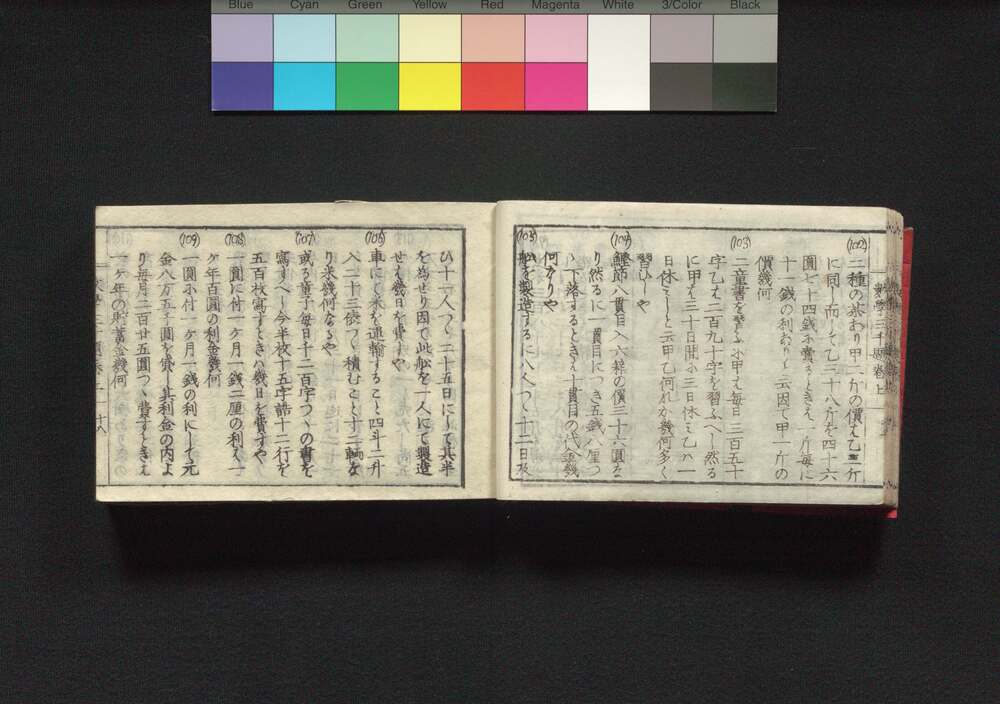 Blue Cyan Green Yellow Red Magenta White 3/Color Black
(102)
二種の茶あり甲二斤の價は乙三斤
に同し而して乙三十八斤を四十六
圓七十四錢に賣るときは一斤毎に
十一錢の利ありと云因て甲一斤の
價幾何
(103)
二童書を習ふに甲は毎日三百五十
字乙は二百九十字を習ふべし然る
に甲は三十日間に三日休み乙ハ一
日休みしと云甲乙何れか幾何多く
習ひしや
(104)
鰹節八貫目入六樽の價三十六圓な
り然るに一貫目につき五錢八厘つ
ゝ下落するときは十貫目の代金幾
何なりや
(105)
舩を製造するに八人つゝ十二日及
ひ十一人つゝ二十五日にして其半
を為せり因て此舩を一人にて製造
せは幾日を費すや
(106)
車にて米を運輸すること四斗二升
入二十三俵つゝ積むこと廿二輛な
り米幾何なるや
(107)
或る童子毎日千二百字つゝの書を
寫すべし今半枚十五字詰十二行を
五百枚寫すときハ幾日を費すや
(108)
一圓に付一ケ月一錢二厘の利は一
ケ年百圓の利金幾何
(109)
一圓に付一ケ月一錢の利にして元
金八万五千圓を貸し其利金の内よ
り毎月二百廿五圓つゝ費すときは
一ケ年の貯蓄金幾何